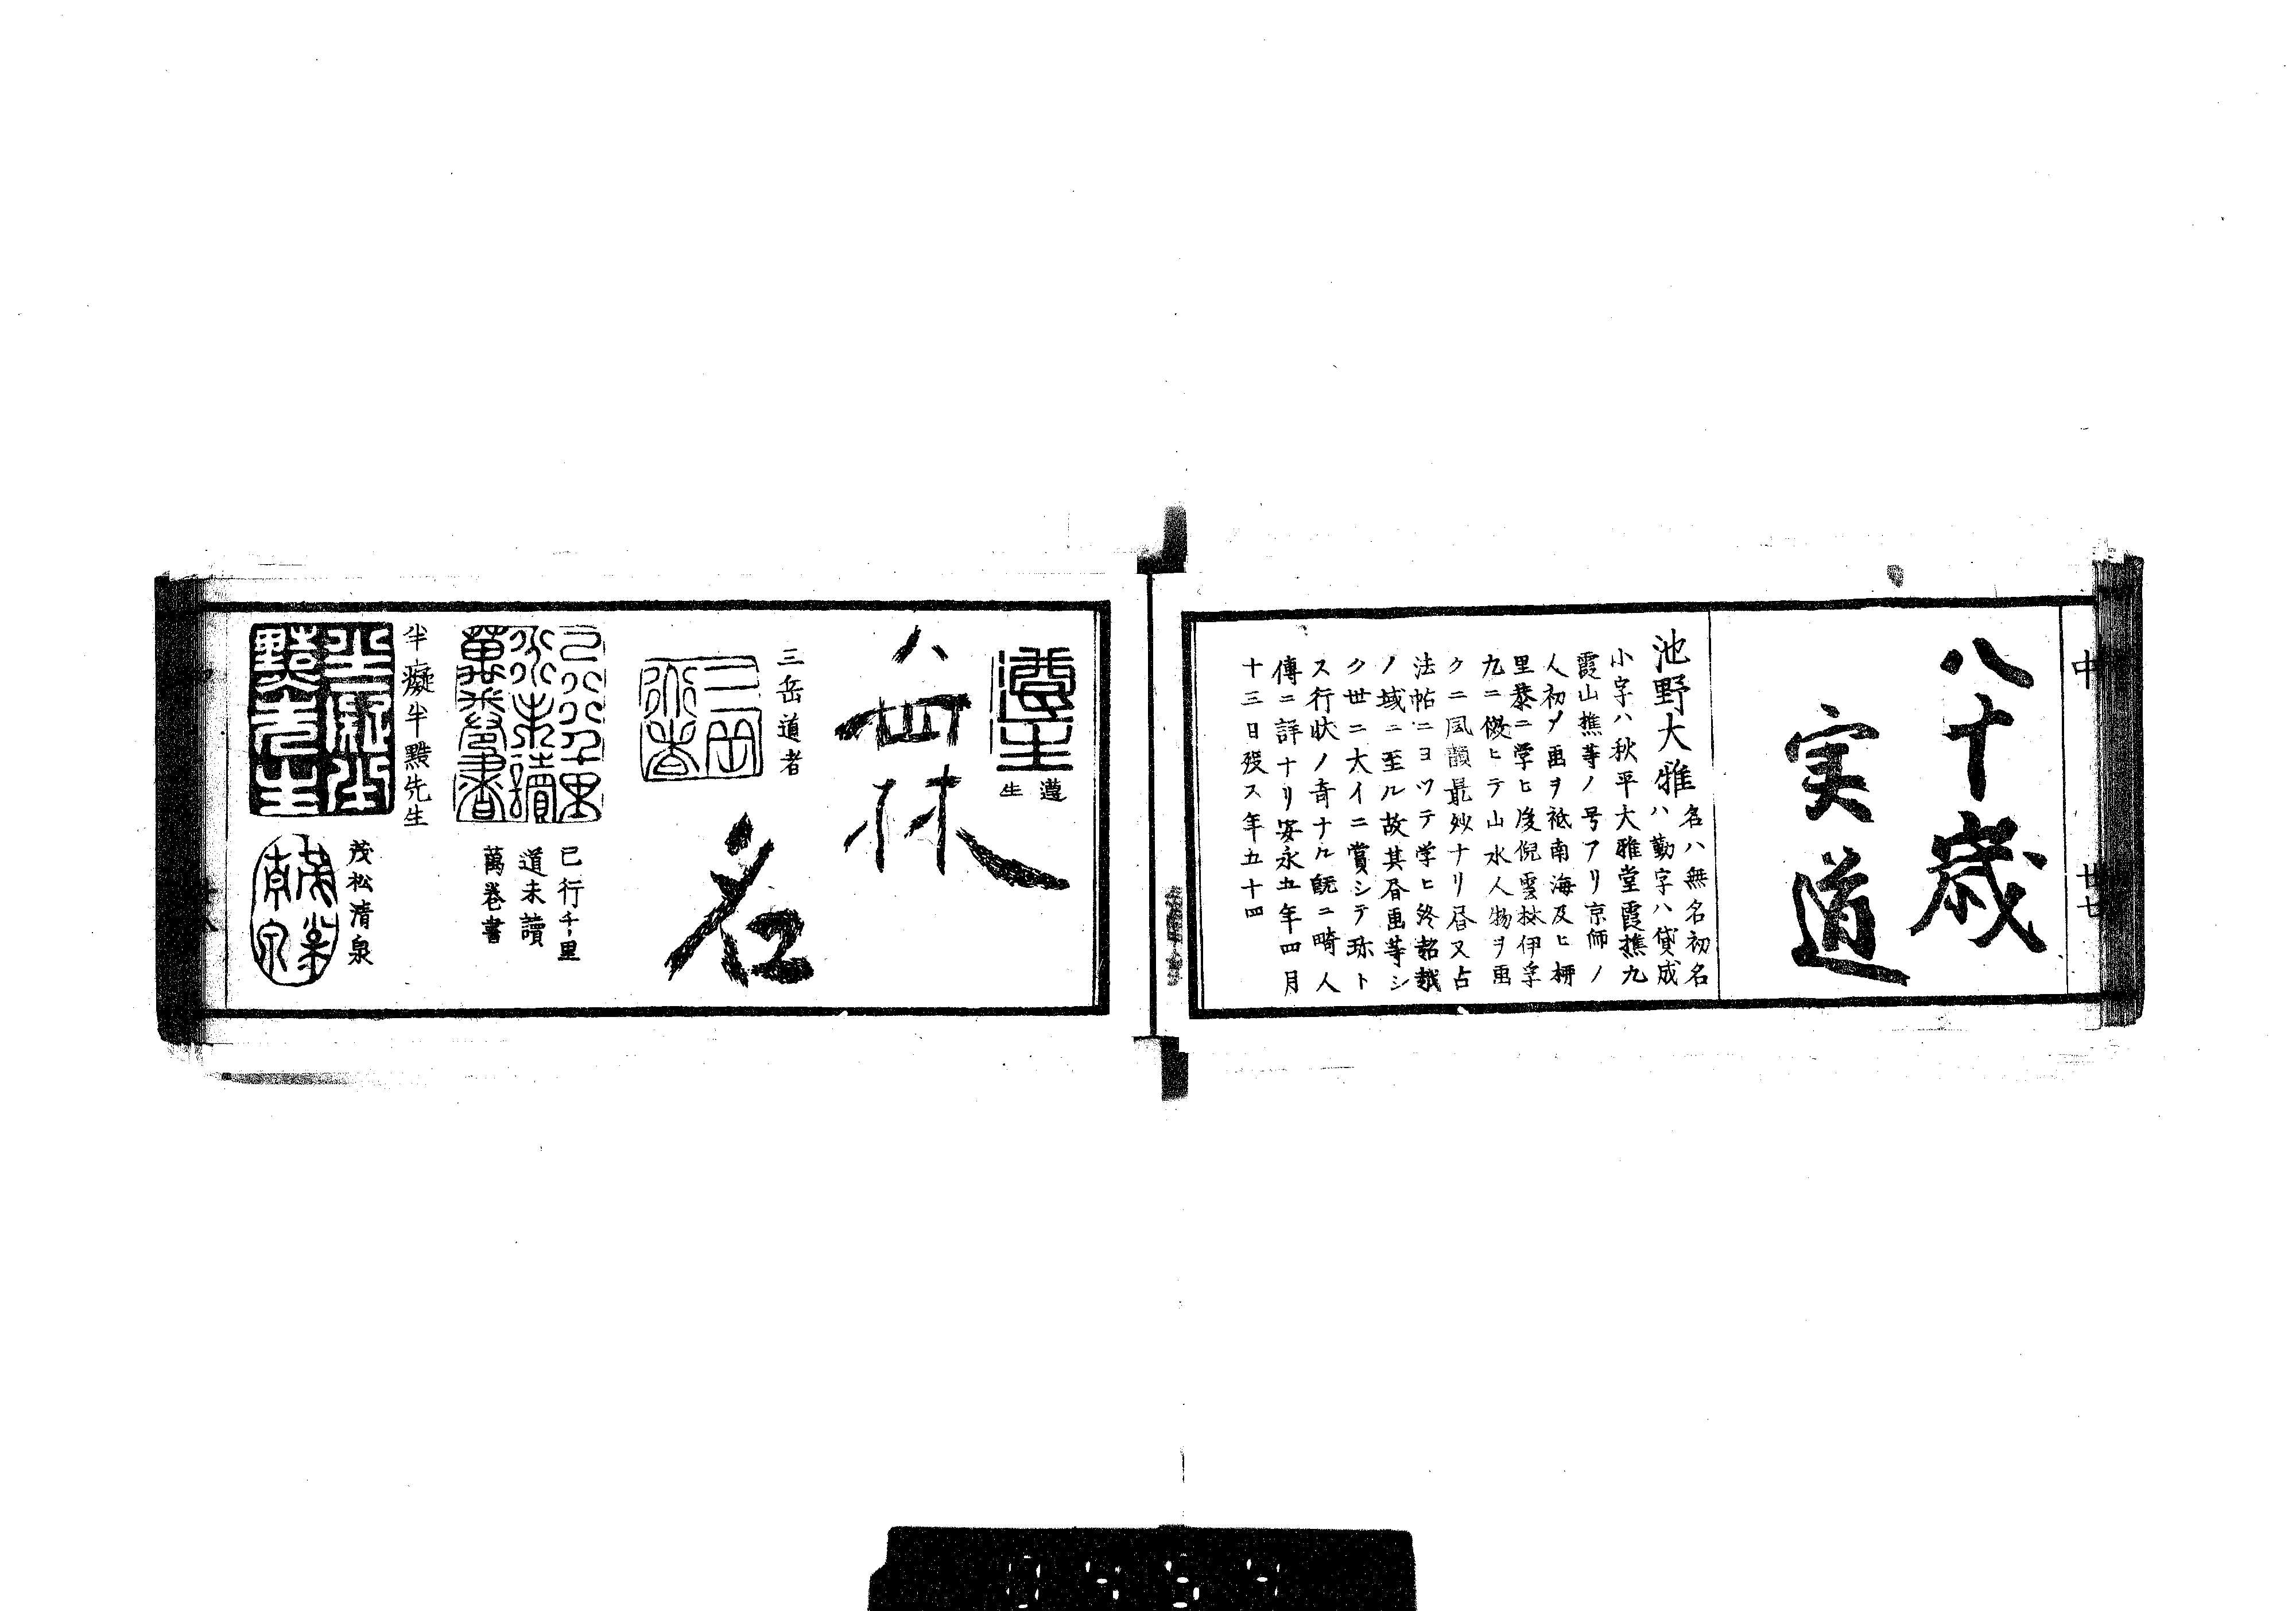 中 廿七
八十歳
実道
池野大雅ハ名ハ無名初名
ハ勤字ハ貸成
小字ハ秋平大雅堂霞樵九
霞山樵等ノ号アリ京師ノ
人初メ画ヲ祗南海及ヒ柳
里恭ニ学ヒ後倪雲林伊孚
九ニ傚ヒテ山水人物ヲ画
クニ風韻最妙ナリ昼又占
法帖ニヨツテ学ヒ終
ノ域ニ至ル故其昼画等シ
ク世ニ大イニ賞シテ珎ト
ス行状ノ奇ナル既ニ畸人
傳ニ詳ナリ安永五年四月
十三日歿ス年五十四
遵生
名
三岳道者
已行千里
道未讀
萬巻書
半癡半黠先生
茂松清泉